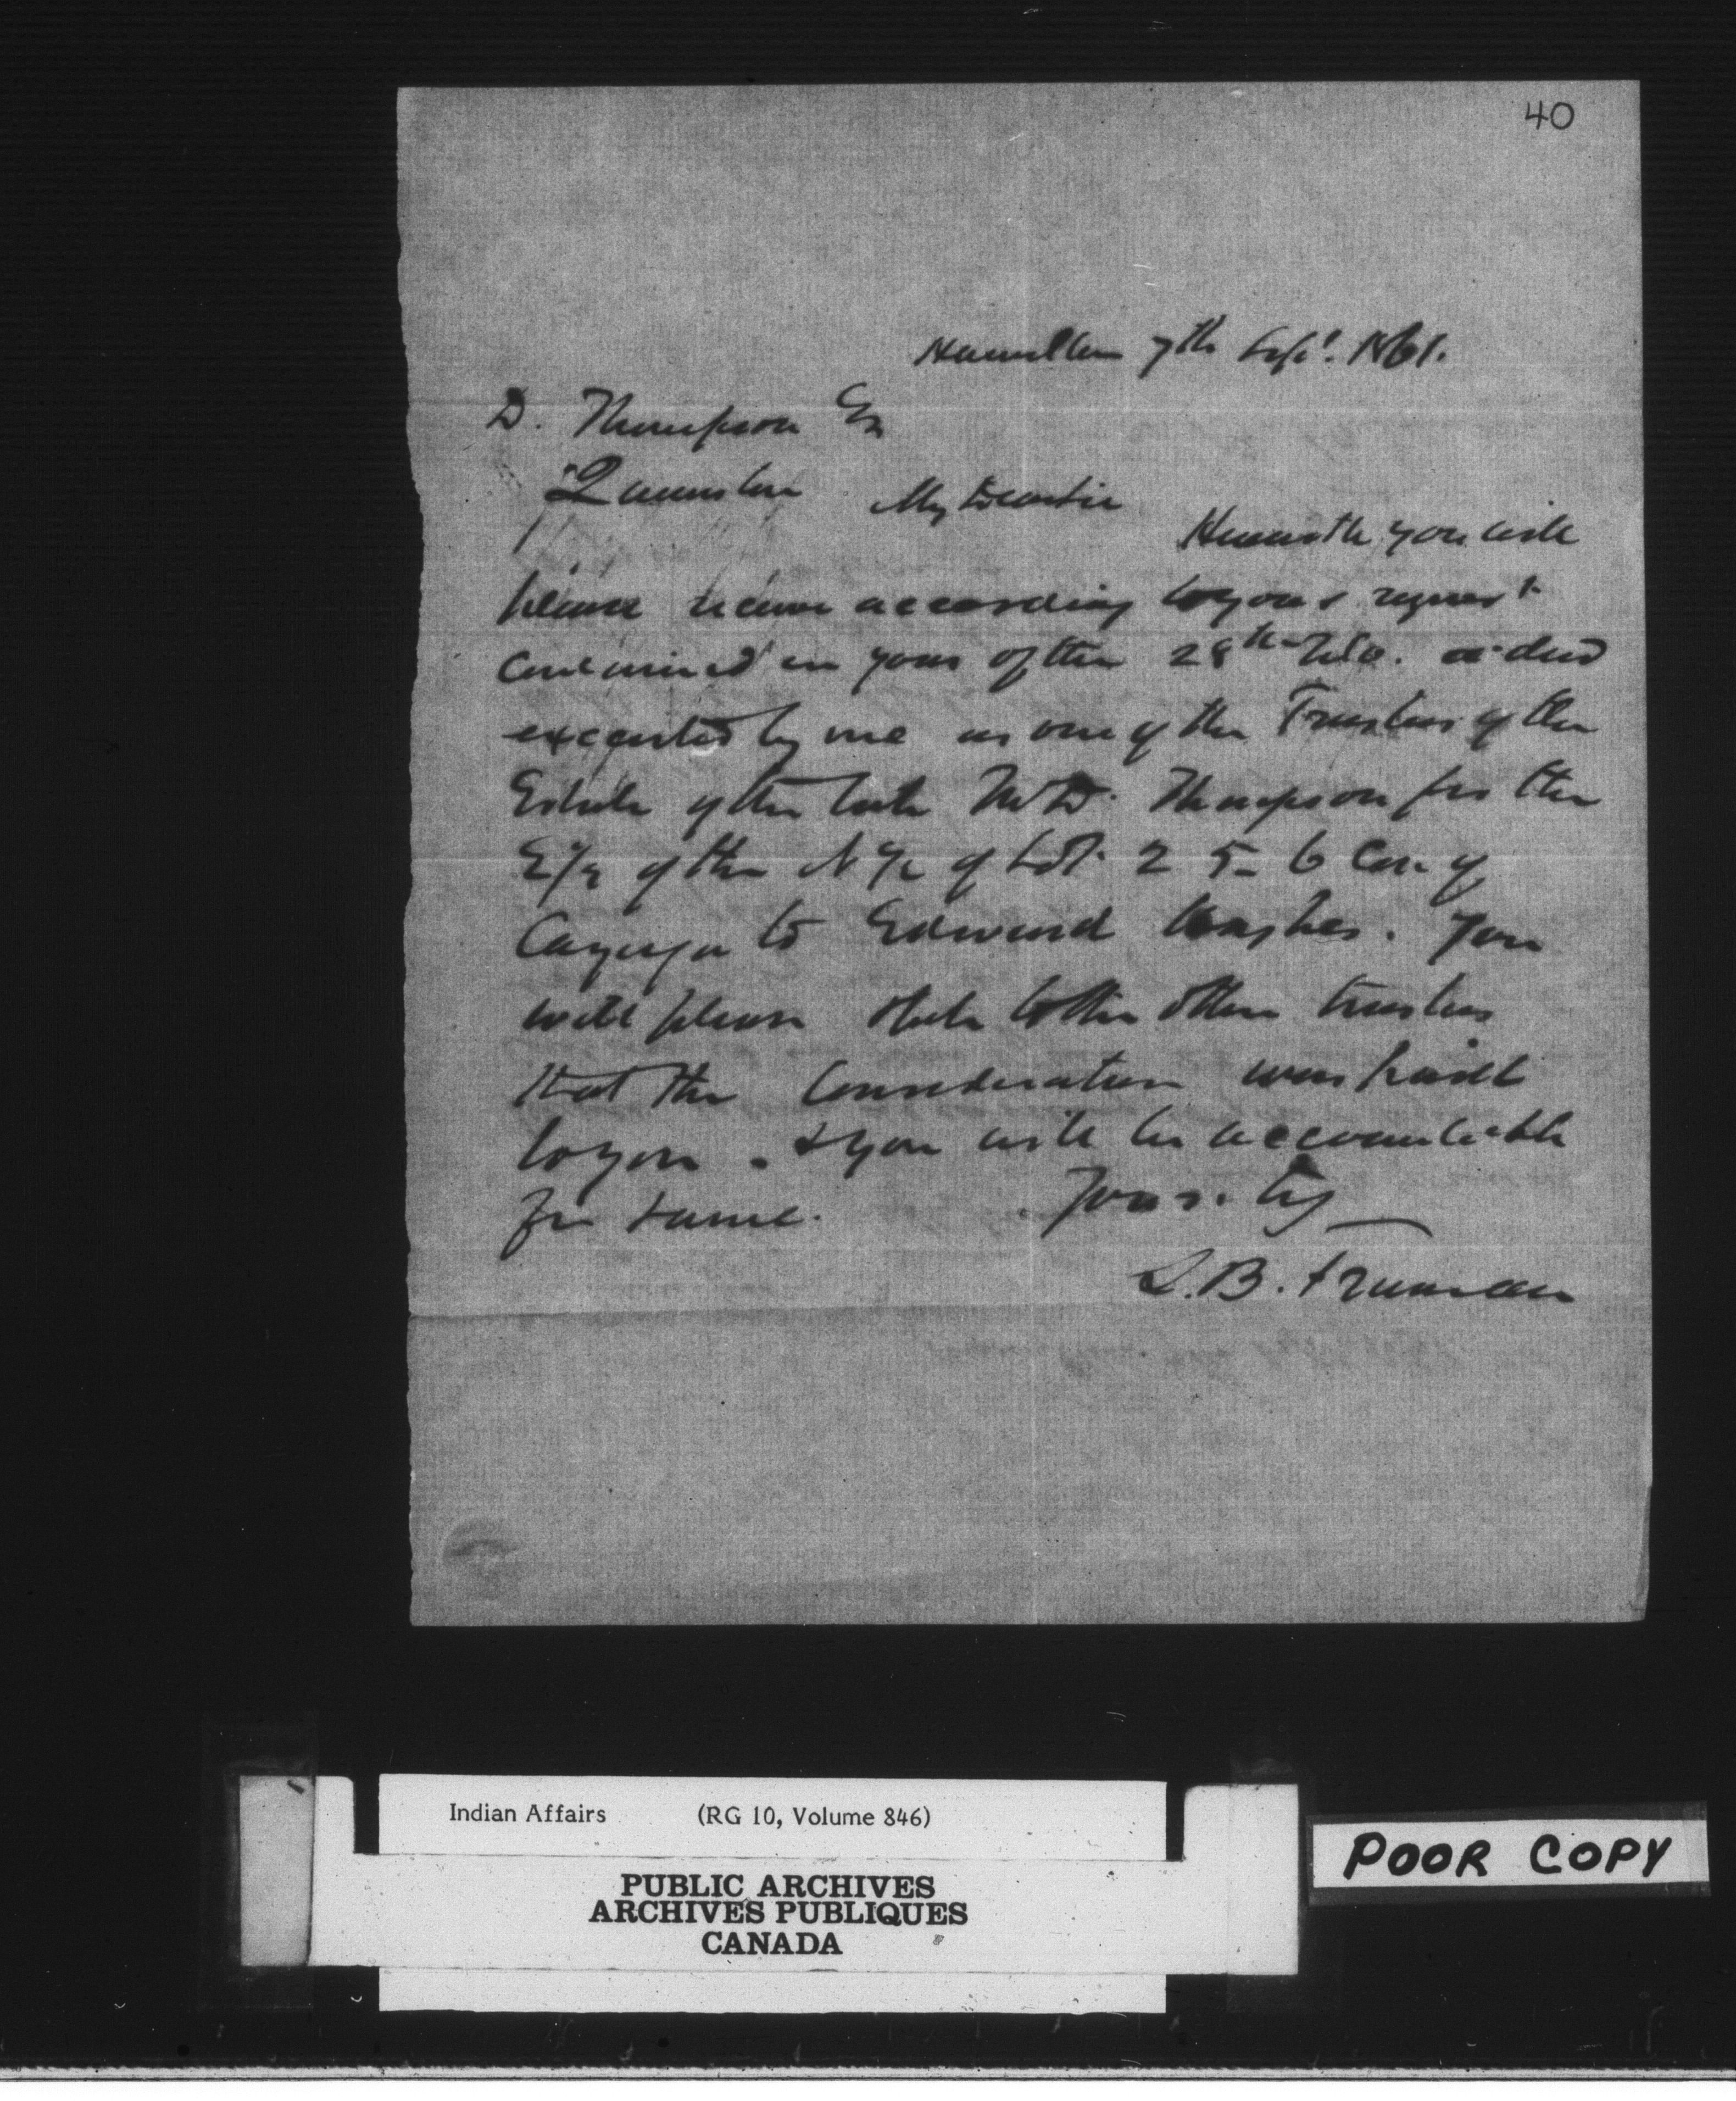 40
Hamilton 7th Sept. 1861.
D. Thompson Esq
My Dear Sir
Herewith you will
please receive according to your request
contained in yours of the 28th Ulto. a deed
executed by me as one of the Trustees of the
Estate of the late Mr D. Thompson for the
E/2 of the N 1/2 of Lot 2 5- 6 Con. of
Cayuga to Edward. You
will please state to the other trustees
that the Consideration was paid
to you. & you will be accountable
for same. Yours. try
S. B. Freeman
Indian Affairs (RG 10, Volume 846)
PUBLIC ARCHIVES
ARCHIVES PUBLIQUES
CANADA
POOR COPY